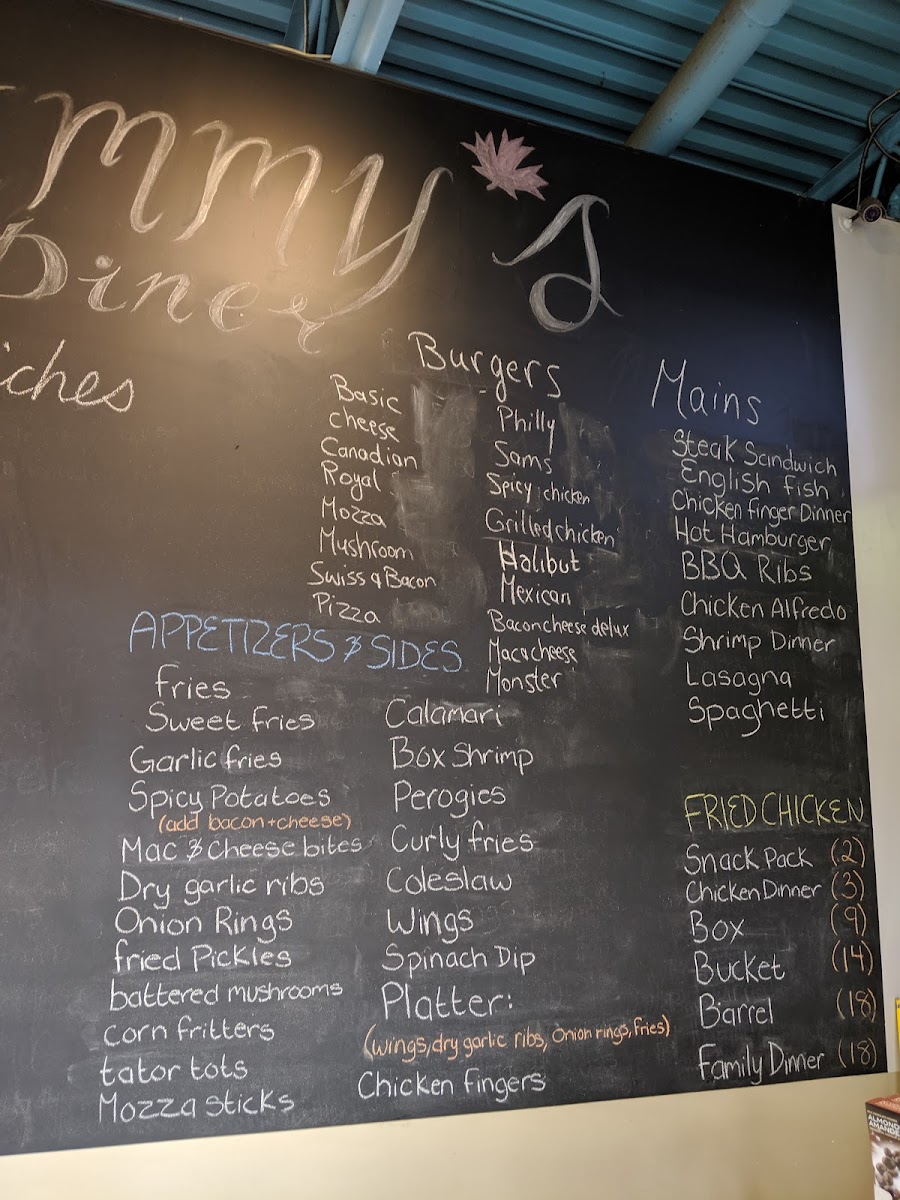 MMY'S
Diner
iches
Burgers
Basic
cheese
Canadian
Royal
Mozza
Mushroom
Swiss & Bacon
Pizza
Philly
Sams
Spicy chicken
Grilled chicken
Halibut
Mexican
Bacon cheese delux
Mac & cheese
Monster
Mains
Steak Sandwich
English fish
Chicken finger Dinner
Hot Hamburger
BBQ Ribs
Chicken Alfredo
Shrimp Dinner
Lasagna
Spaghetti
APPETIZERS & SIDES
fries
Sweet fries
Garlic fries
Spicy Potatoes
(add bacon + cheese)
Mac & Cheese bites
Dry garlic ribs
Onion Rings
fried Pickles
battered mushrooms
corn fritters
tator tots
Mozza sticks
Calamari
Box Shrimp
Perogies
Curly fries
Coleslaw
Wings
Spinach Dip
Platter:
(wings, dry garlic ribs, onion rings, fries)
Chicken fingers
FRIED CHICKEN
Snack Pack (2)
Chicken Dinner (3)
Box (9)
Bucket (14)
Barrel (18)
Family Dinner (18)
ALMOND
AMANDE